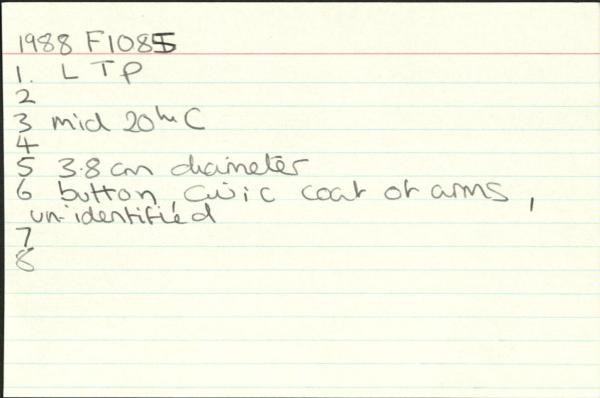 1988 F1085
1. LTP
2
3 mid 20th C
4
5 3.8 cm diameter
6 button, civic coat of arms,
unidentified
7
8